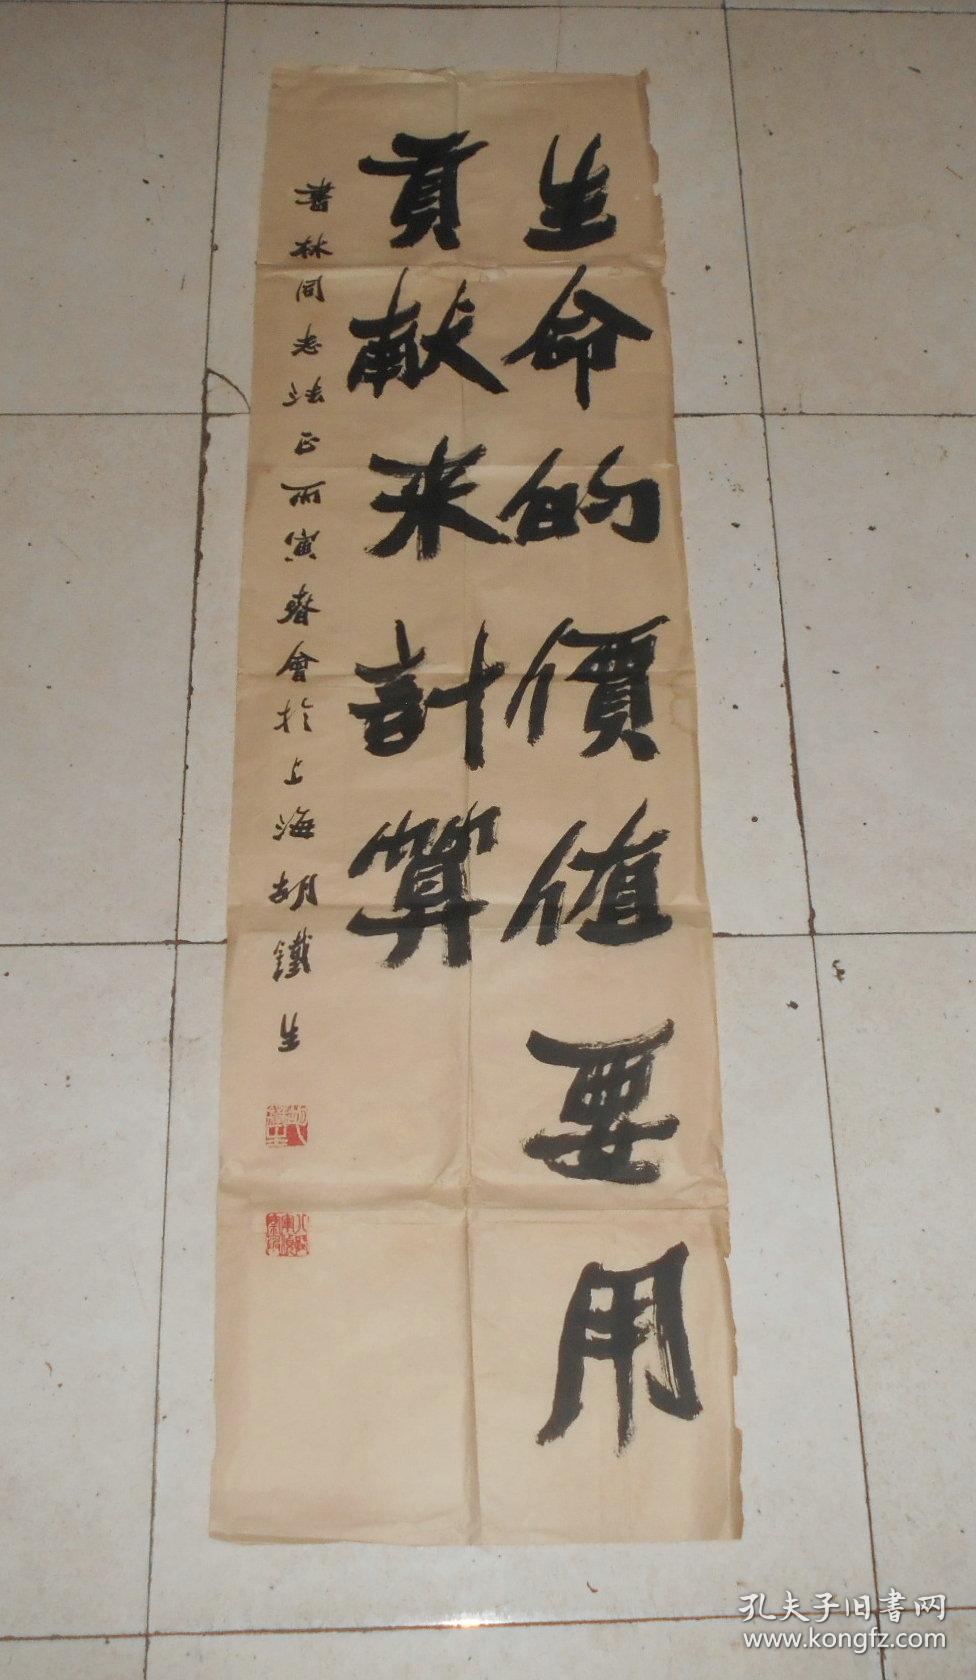 生命的價值要用
貢献来計算
林同志法正丙寅春會於上海胡鐵生
孔夫子旧書网
www.kongfz.com